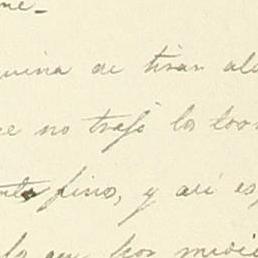 me_
quina de tirar al
e no trajó los
nte finos, y así es
lo que por medi